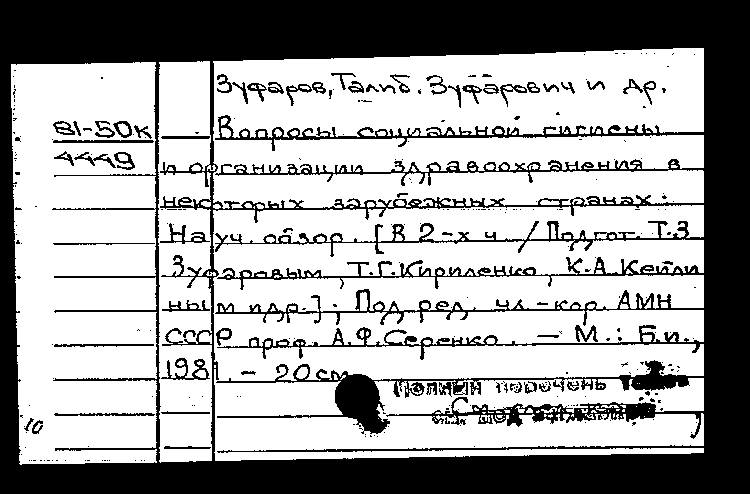 Зуфаров, Талиб. Зуфарович и др.
81-50к Вопросы социальной гигиены
4449 и организации здравоохранения в
некоторых зарубежных странах:
Науч. обзор. [В 2-х ч. / Подгот. Т.З
Зуфаровым, Т.Г. Кириленко, К.А. Кейли
ным и др.]; Под ред. чл.-кор. АМН
СССР проф. А.Ф. Серенко. — М.: Б.и.,
1981. - 20 см
Полный перечень томов
см.
10